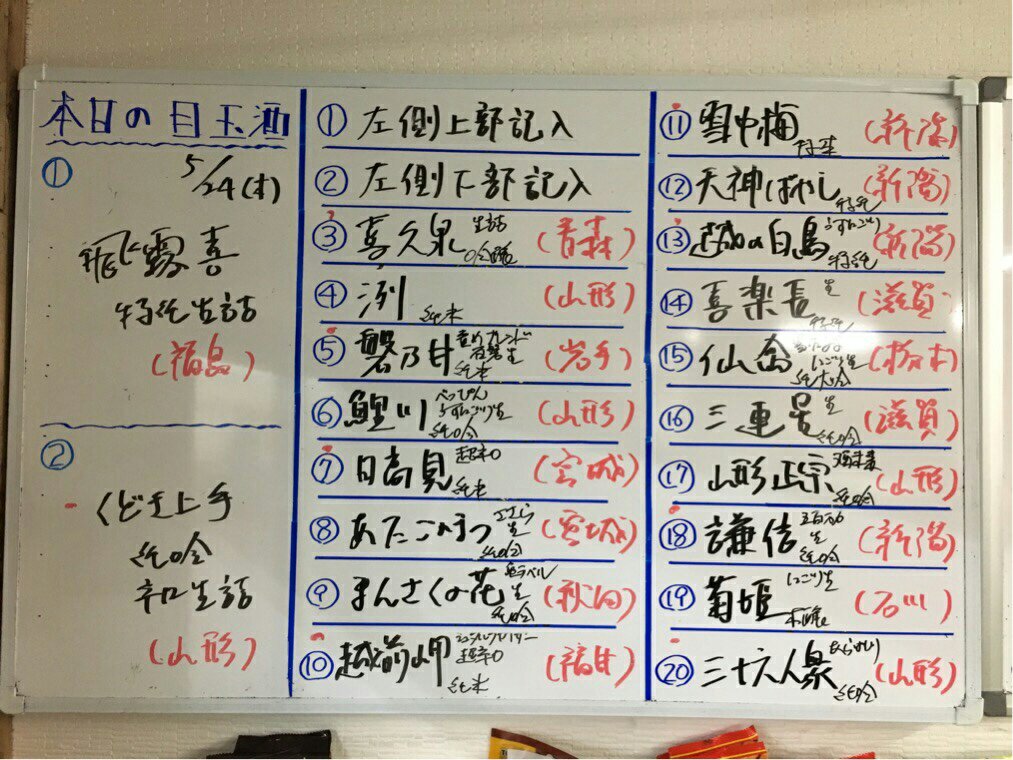 本日の目玉酒
①
5/24(木)
飛露喜
特純生詰
(福島)
②
くどき上手
純吟
辛口生詰
(山形)
① 左側上部記入
② 左側下部記入
③ 喜久泉 生詰 吟醸 (青森)
④ 洌 純米 (山形)
⑤ 磐乃井 純米 (岩手)
⑥ 鯉川 べっぴん うすにごり生 純吟 (山形)
⑦ 日高見 超辛口 純米 (宮城)
⑧ あたごのまつ 生 純吟 (宮城)
⑨ まんさくの花 ラベル 生 純吟 (秋田)
⑩ 越前岬 超辛口 純米 (福井)
⑪ 雪中梅 (新潟)
⑫ 天神ばやし 特純 (新潟)
⑬ 越の白鳥 うすにごり 特純 (新潟)
⑭ 喜楽長 生 特純 (滋賀)
⑮ 仙禽 にごり生 純大吟 (栃木)
⑯ 三連星 生 純吟 (滋賀)
⑰ 山形正宗 酒未来 純吟 (山形)
⑱ 謙信 五百万石 生 純吟 (新潟)
⑲ 菊姫 にごり生 (石川)
⑳ 三十六人衆 純吟 (山形)